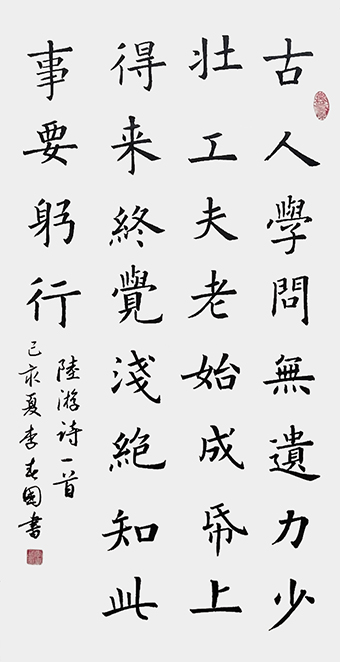 古人學問無遺力少
壮工夫老始成帋上
得来終覺淺絕知此
事要躬行
陸游诗一首
己亥夏李國書